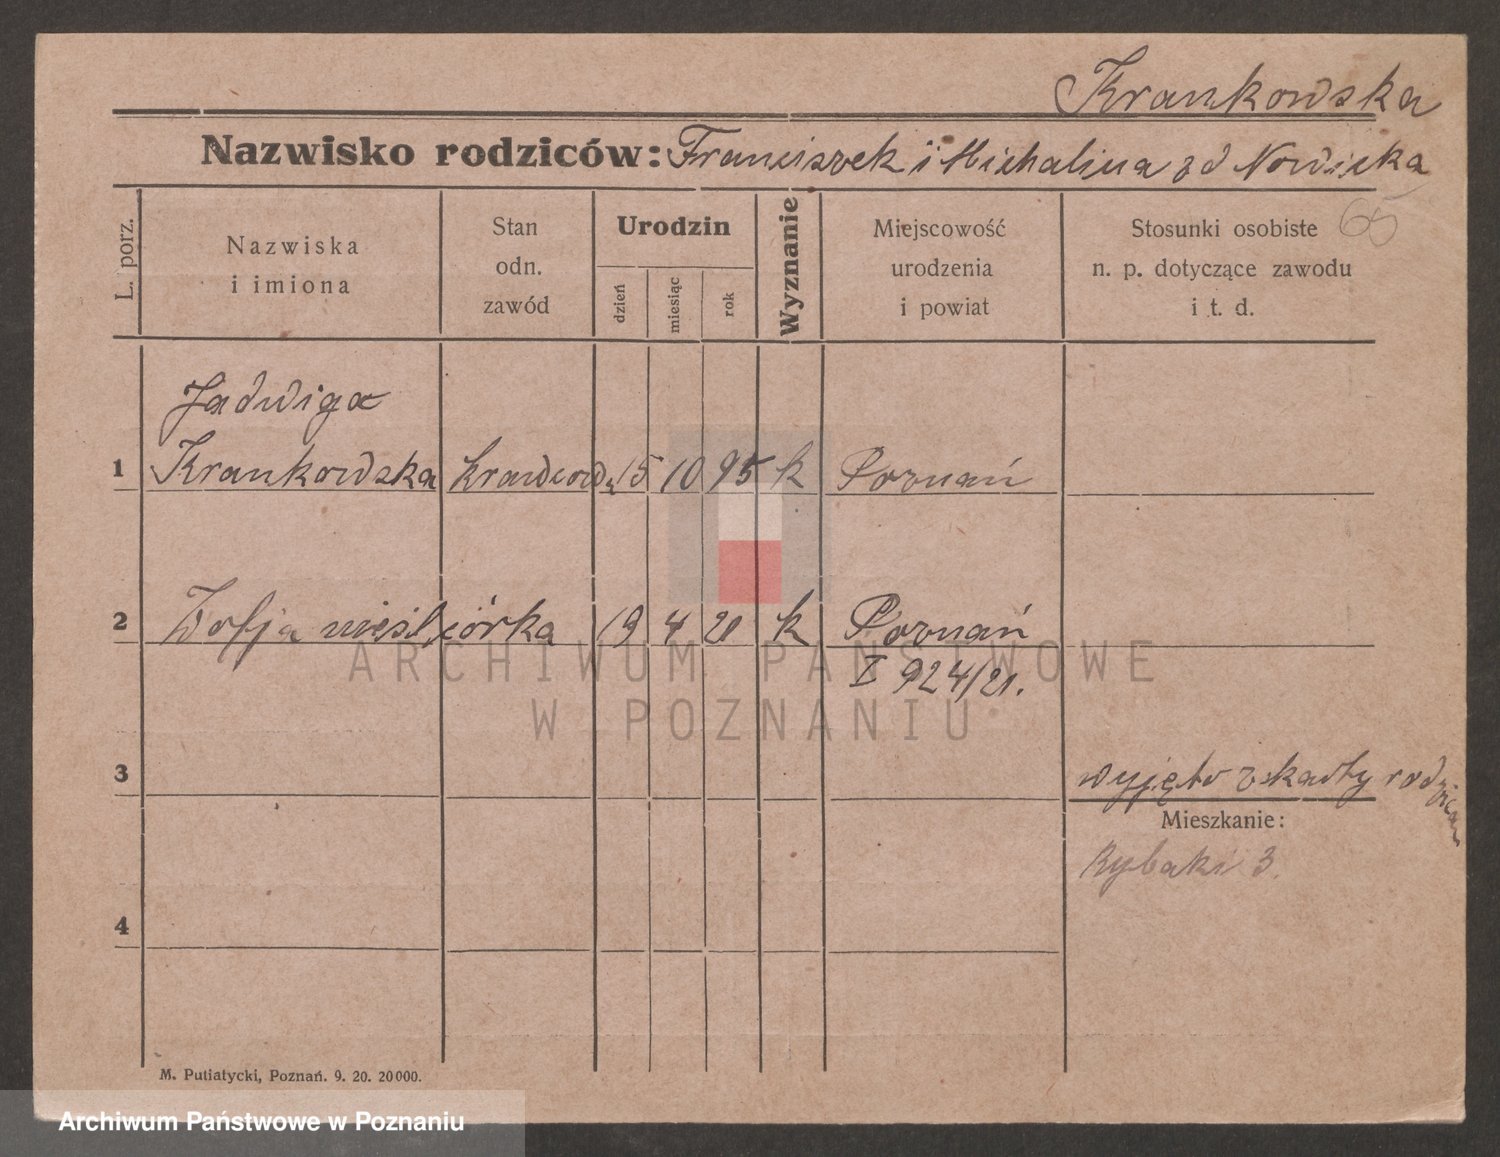 Krankowska
Nazwisko rodziców: Franciszek i Michalina zd Nowicka
65
L. porz.
Nazwiska
i imiona
Stan
odn.
zawód
Urodzin
dzień
miesiąc
rok
Wyznanie
Miejscowość
urodzenia
i powiat
Stosunki osobiste
n. p. dotyczące zawodu
i t. d.
Jadwiga
1 Krankowska krawcowa 15 10 95 k Poznań
2 Zofja nieśl. córka 19 4 21 k Poznań
I 924/21.
3
wyjęto z karty rodziców
Mieszkanie:
Rybaki 3.
4
M. Putiatycki, Poznań. 9. 20. 20000.
ARCHIWUM PAŃSTWOWE
W POZNANIU
Archiwum Państwowe w Poznaniu